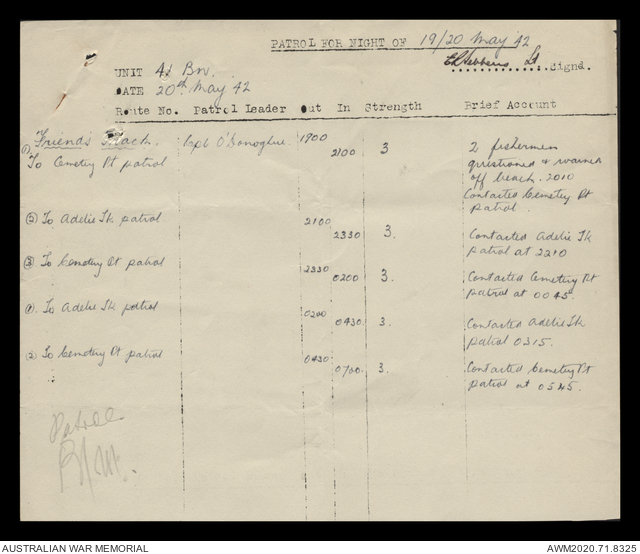 PATROL FOR NIGHT OF 19/20 May 42
Lt Signd.
UNIT 41 Bn.
DATE 20th May 42
Route No. Patrol Leader Out In Strength Brief Account
Friends Track. Cpl O'Donoghue. 1900
(1) To Cemetery Pt patrol 2100 3 2 fishermen
questioned & warned
off beach. 2010
Contacted Cemetery Pt
patrol.
(2) To Adelie Tk patrol 2100
2330 3. Contacted Adelie Tk
patrol at 2210
(3) To Cemetery Pt patrol 2330
0200 3. Contacted Cemetery Pt
patrol at 0045
To Adelie Tk patrol 0200
0430 3. Contacted Adelie Tk
patrol 0315.
To Cemetery Pt patrol 0430
0700. 3. Contacted Cemetery Pt
patrol at 0545
AUSTRALIAN WAR MEMORIAL AWM2020.71.8325